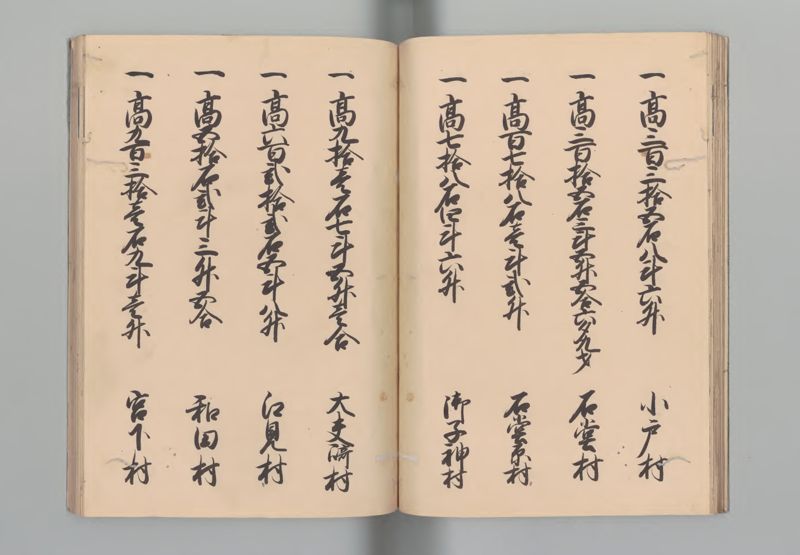 一 高三百三拾五石八斗六升 小戸村
一 高三百拾五石三斗五升五合六夕九才 石堂村
一 高百七拾八石壱斗弐升 石堂原村
一 高七拾八石四斗六升 御子神村
一 高九拾壱石七斗五升壱合 大夫崎村
一 高六百弐拾弐石五斗八升 江見村
一 高五拾石弐斗三升五合 和田村
一 高九百三拾壱石九斗壱升 宮下村